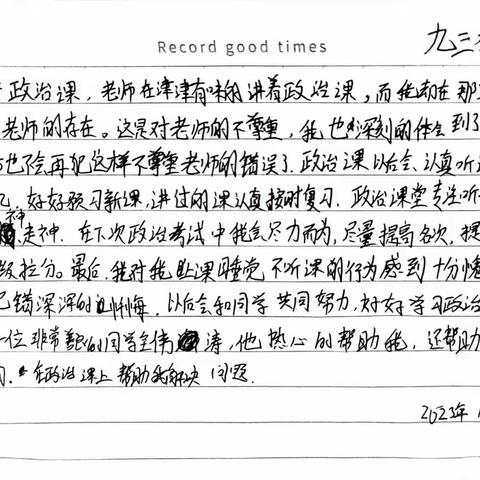 Record good times
九三
政治课，老师在津津有味的讲着政治课，而我却在那
老师的存在。这是对老师的不尊重，我也深刻的体会到了
也不会再犯这样不尊重老师的错误了.政治课以后会、认真听
好好预习新课，讲过的课认真按时复习.政治课堂专注听
神
走神.在下次政治考试中我会尽力而为，尽量提高名次，提
级拉分。最后，我对我趴课睡觉不听课的行为感到十分愧
己错深深的忏悔.以后会和同学共同努力，好好学习政治
一位非常靓的同学 涛，他热心的帮助我，还帮助
司.在政治课上帮助我解决问题.
2023年1